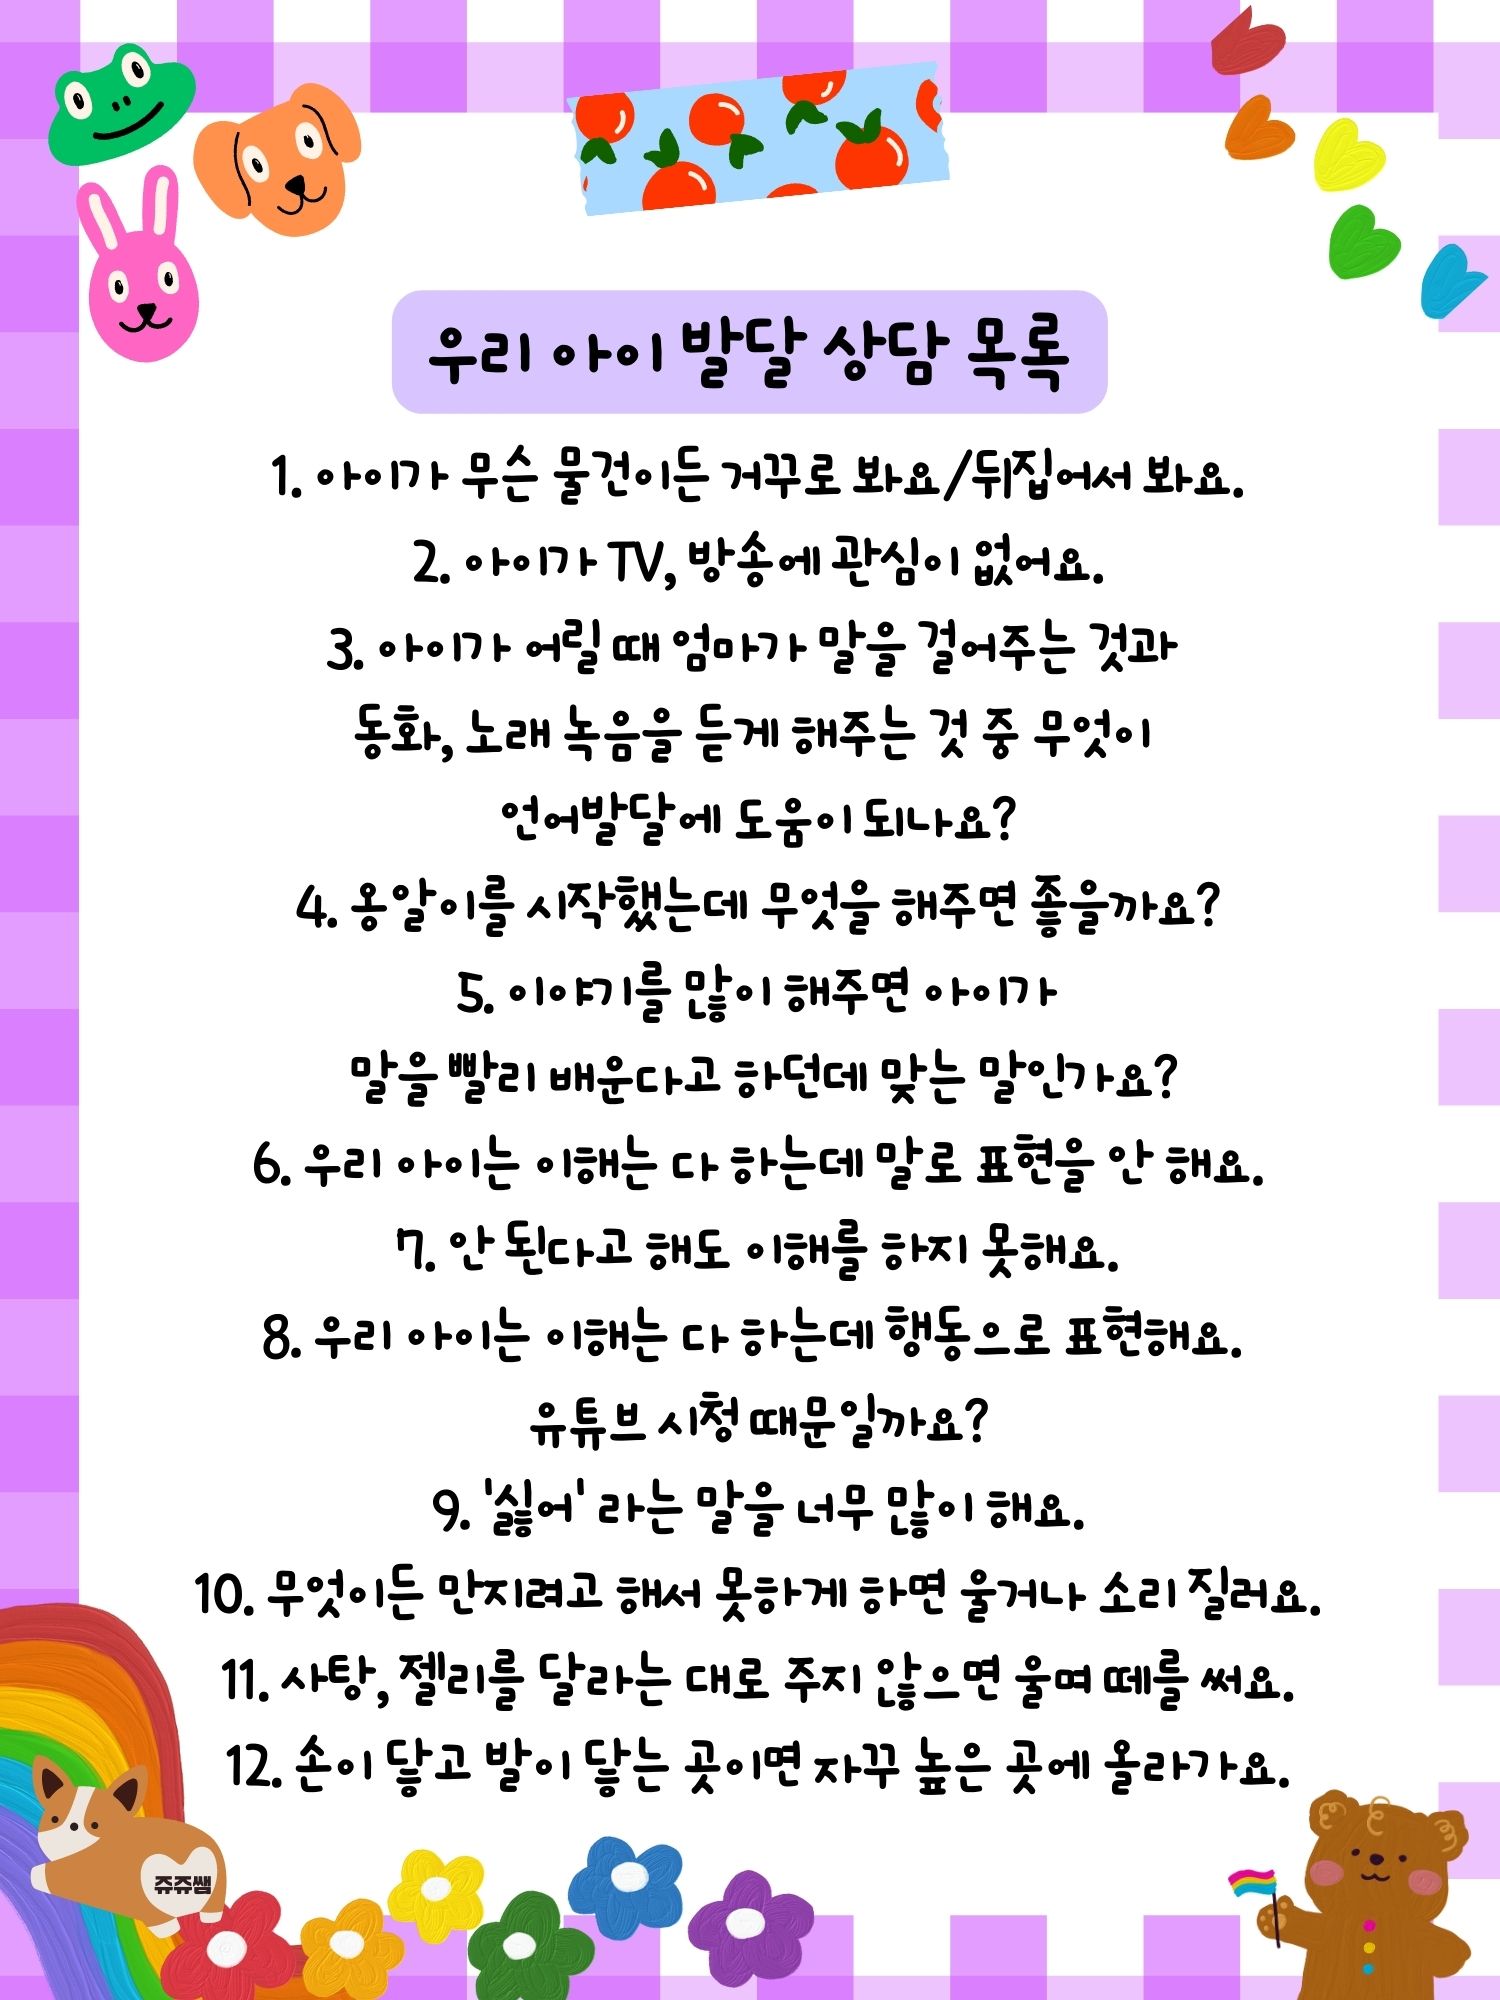 우리 아이 발달 상담 목록
1. 아이가 무슨 물건이든 거꾸로 봐요/뒤집어서 봐요.
2. 아이가 TV, 방송에 관심이 없어요.
3. 아이가 어릴 때 엄마가 말을 걸어주는 것과
동화, 노래 녹음을 듣게 해주는 것 중 무엇이
언어발달에 도움이 되나요?
4. 옹알이를 시작했는데 무엇을 해주면 좋을까요?
5. 이야기를 많이 해주면 아이가
말을 빨리 배운다고 하던데 맞는 말인가요?
6. 우리 아이는 이해는 다 하는데 말로 표현을 안 해요.
7. 안 된다고 해도 이해를 하지 못해요.
8. 우리 아이는 이해는 다 하는데 행동으로 표현해요.
유튜브 시청 때문일까요?
9. '싫어' 라는 말을 너무 많이 해요.
10. 무엇이든 만지려고 해서 못하게 하면 울거나 소리 질러요.
11. 사탕, 젤리를 달라는 대로 주지 않으면 울며 떼를 써요.
12. 손이 닿고 발이 닿는 곳이면 자꾸 높은 곳에 올라가요.
쥬쥬쌤